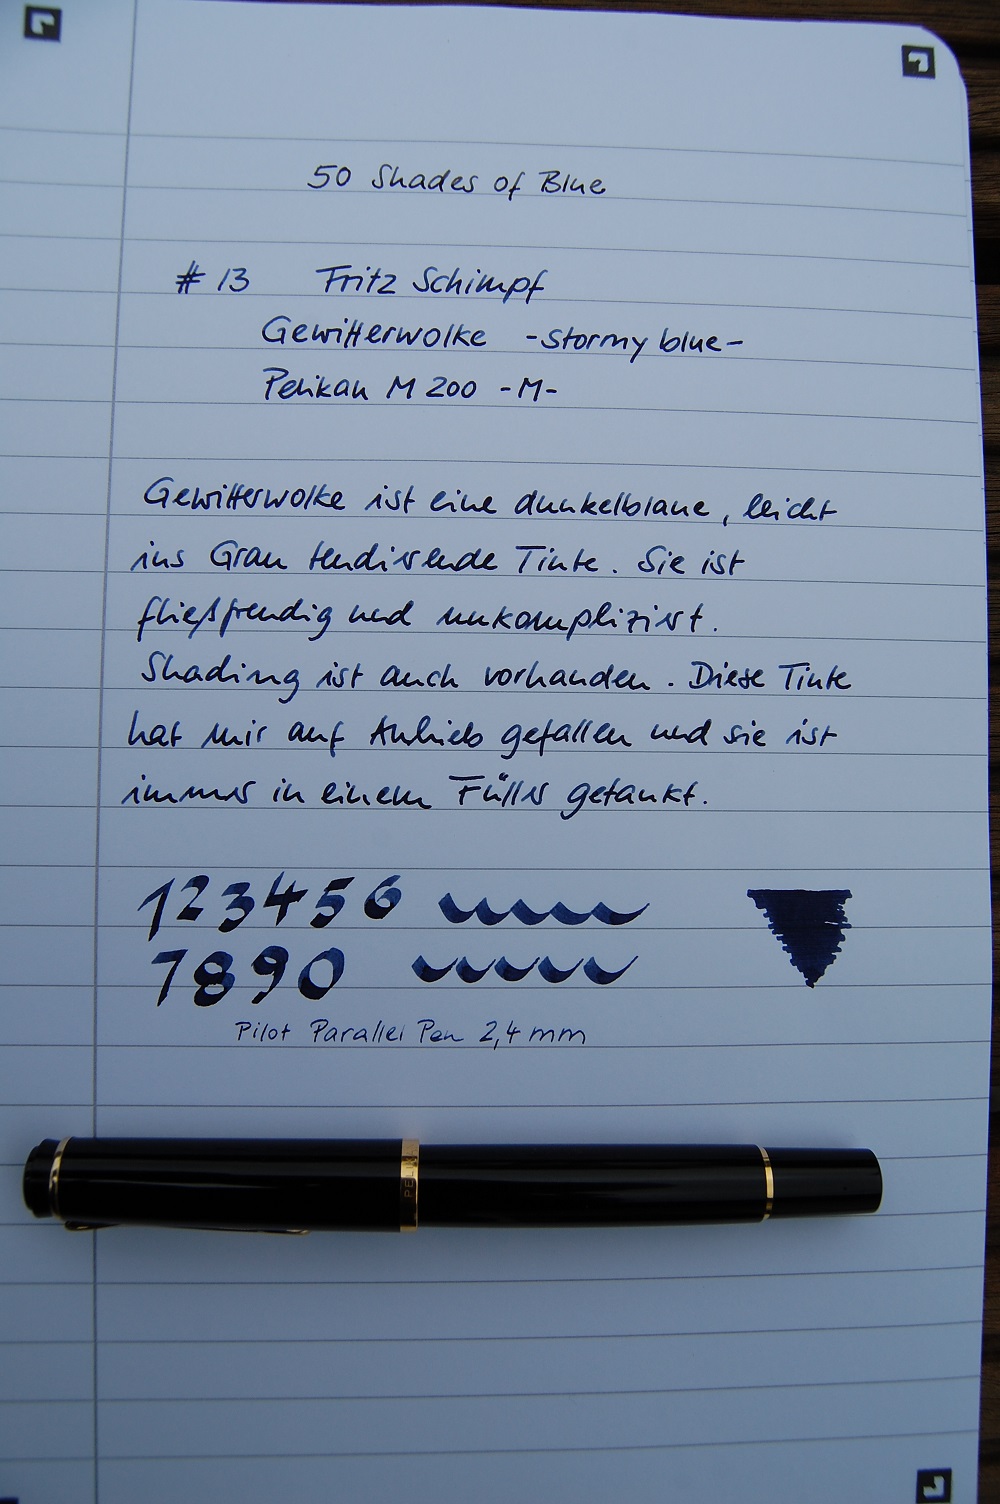 50 Shades of Blue
# 13 Fritz Schimpf
Gewitterwolke -Stormy blue-
Pelikan M 200 -M-
Gewitterwolke ist eine dunkelblaue, leicht
ins Grau tendierende Tinte. Sie ist
fließfreudig und unkompliziert.
Shading ist auch vorhanden. Diese Tinte
hat mir auf Anhieb gefallen und sie ist
immer in einem Füller getankt.
1 2 3 4 5 6
7 8 9 0
Pilot Parallel Pen 2,4 mm